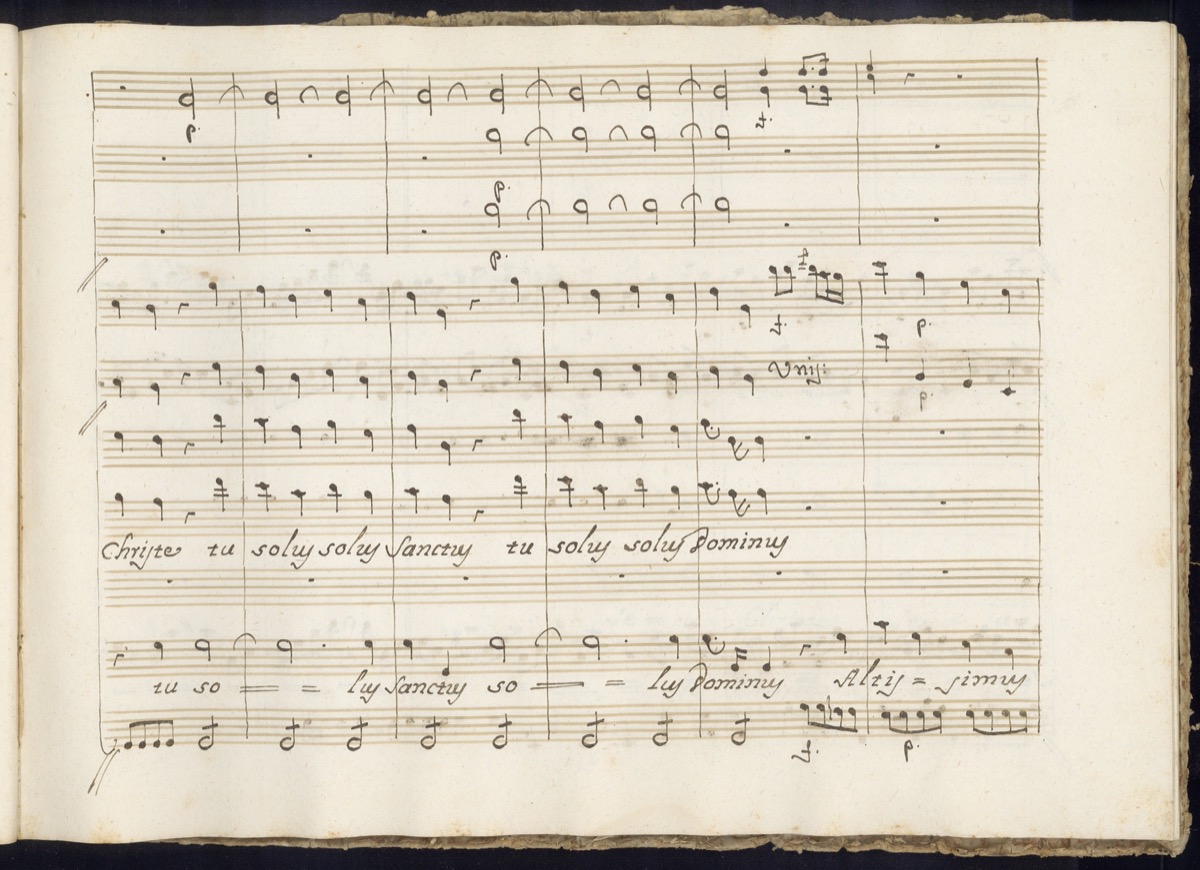 p.
f.
p.
p.
f. p.
Unis:
p.
Christe tu solus solus Sanctus tu solus solus Dominus
tu so == = lus Sanctus so == = lus Dominus Altis = simus
f. p.